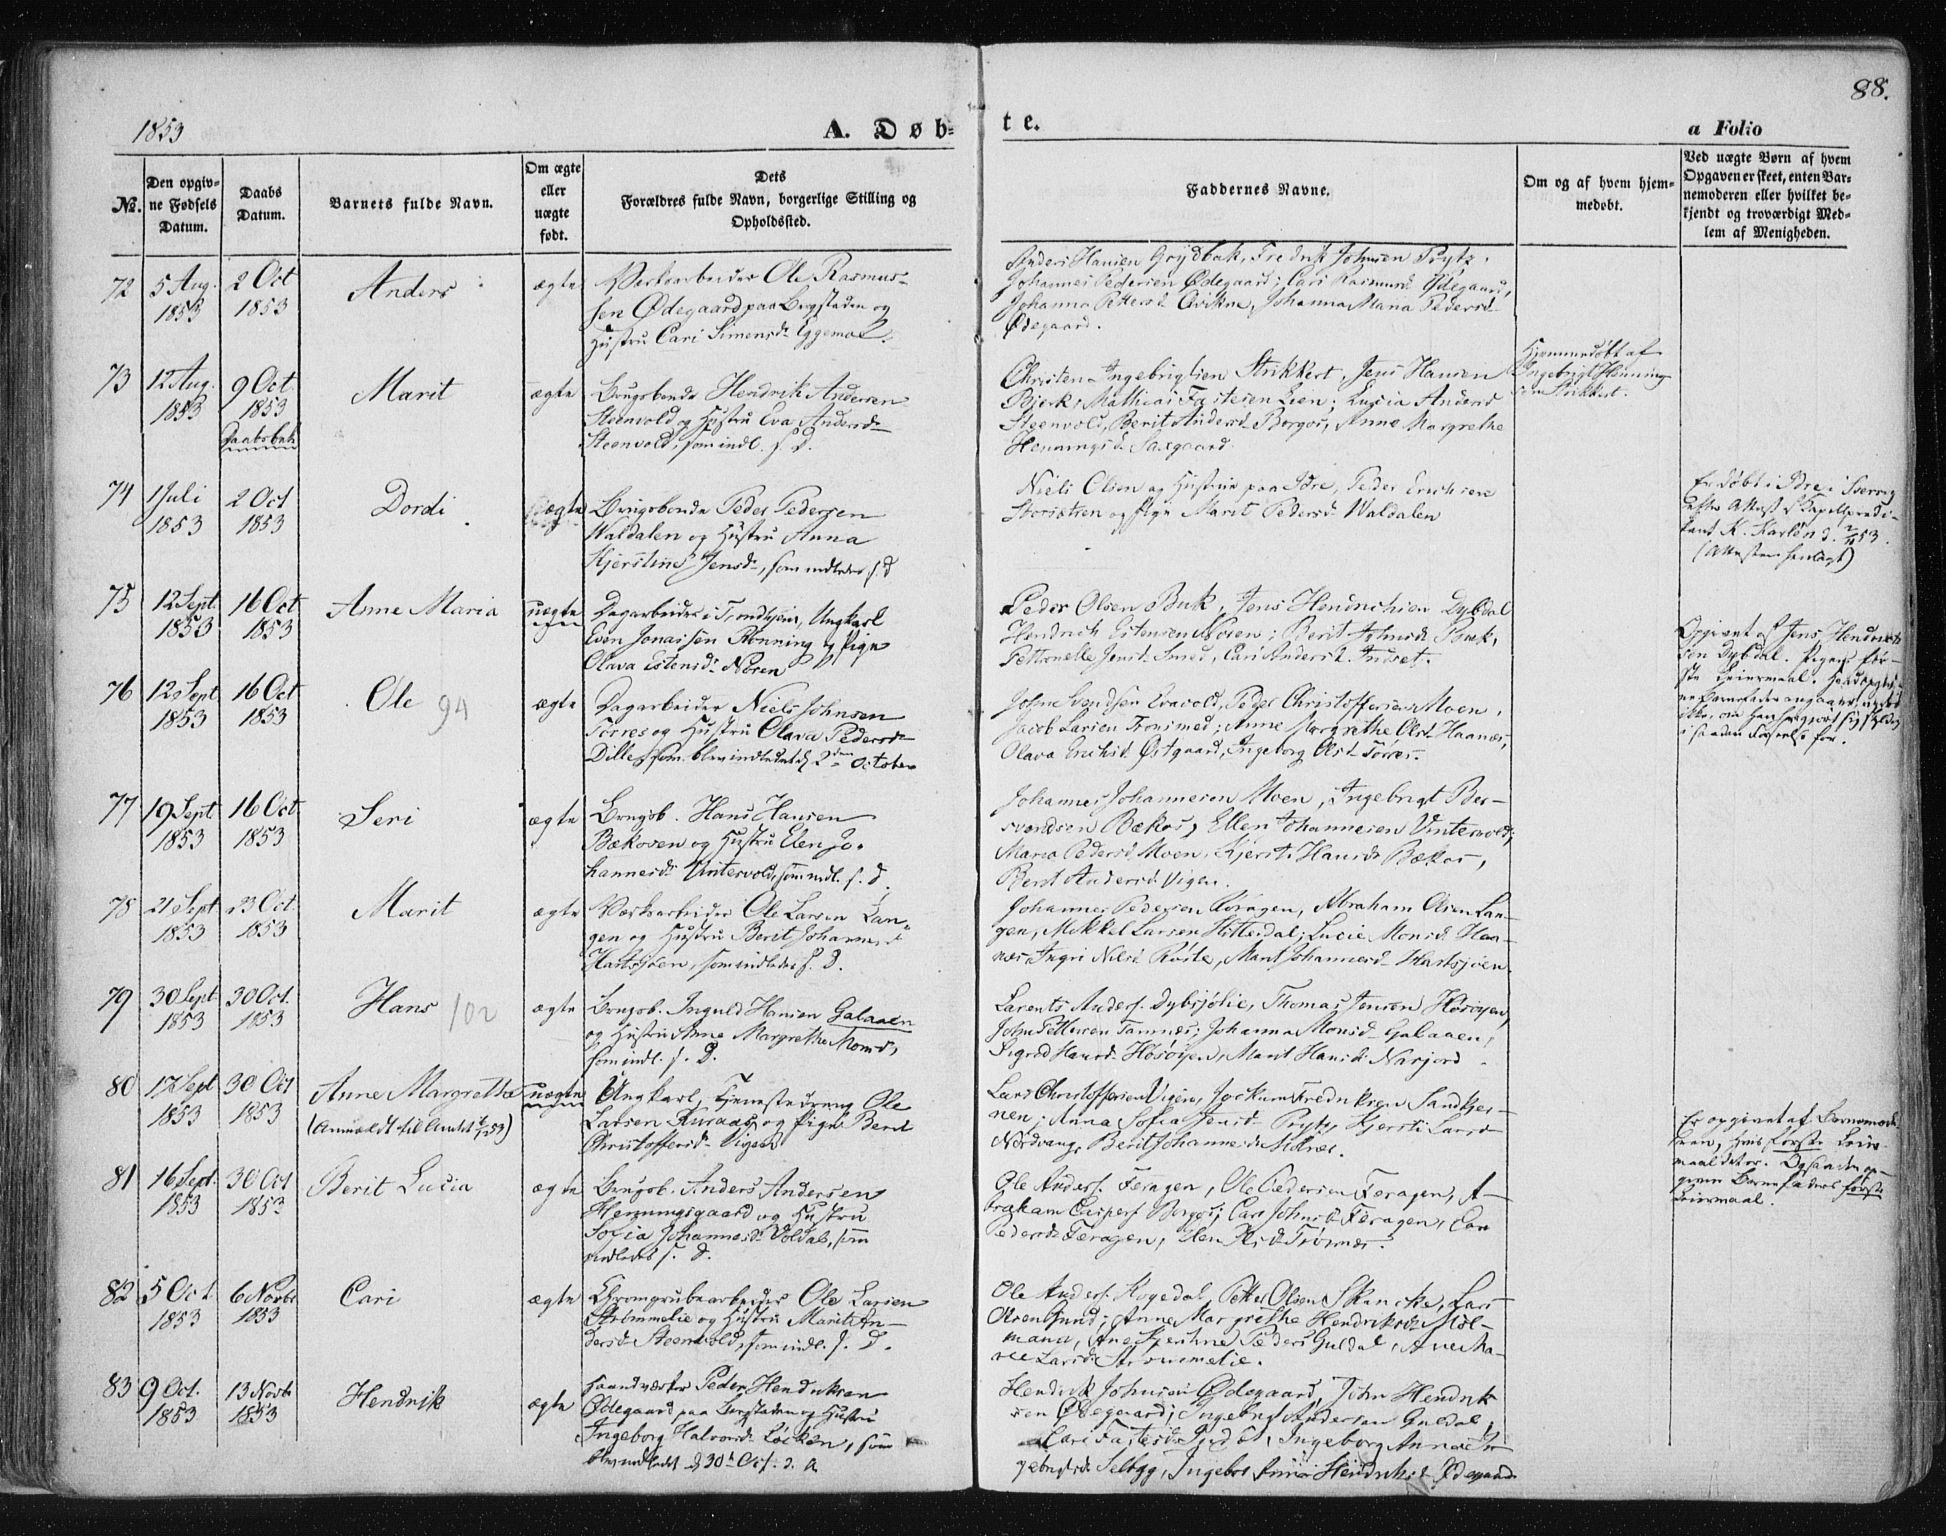 88.
1853
A. Døb-
te.
a Folio
No.
Den opgiv-
ne Fødsels
Datum.
Daabs
Datum.
Barnets fulde Navn.
Om ægte
eller
uægte
født.
Dets
Forældres fulde Navn, borgerlige Stilling og
Opholdssted.
Faddernes Navne.
Om og af hvem hjem-
medøbt.
Ved uægte Børn af hvem
Opgaven er skeet, enten Bar-
nemoderen eller hvilket be-
kjendt og troværdigt Med-
lem af Menigheden.
72
5 Aug.
1853
2 Oct
1853
Anders
ægte
Værksarbeider Ole Rasmus-
sen Ødegaard paa Bergstaden og
Hustru Cari Simensd.
Anders Hansen Fredrik Johnsen Prytz.
Johannes Pedersen Ødegaard; Cari Rasmusd. Ødegaard,
Johanna Pettersd. Johanna Maria Pedersd.
Ødegaard.
73
12 Aug.
1853
9 Oct.
1853
Marit
ægte
Brugsbonde Hendrik Andersen
Steenvold og Hustru Eva Andersd.
Steenvold, som indl. s. D.
Christen Ingebrigtsen Strikkert, Jens Hansen
Mathias Fastesen Lucia Andersd
Steenvold, Berit Andersd. Borgos, Anne Margrethe
Henningsd.
Hjemmedøbt af
Ingebrigt Henning-
sen Strikkert.
74
1 Juli
1853
2 Oct
1853
Dordi
ægte
Brugsbonde Peder Pedersen
Waldalen og Hustru Anna
Kjerstine Jensd., som indledes s. D
Niels Olsen og Hustru paa Idre, Peder Erichsen
og Pige Marit Pedersd. Waldalen
Er døbt i Idre i Sverig
efter Attest fra Capelpredi-
kant K. Karlén d. 2/10 53.
(Attesten henlagt)
75
12 Sept.
1853
16 Oct
1853
Anne Maria
uægte
Dagarbeider i Trondhjem, Ungkarl
Even Jonassen Rønning og Pige
Olava Estensd. Noren
Peder Olsen Buk, Jens Hendrichsen Dybdal
Hendrich Estensen Noren; Berit Johnsd. Buk,
Petronelle Jensd. Smed, Cari Andersd. Indset.
Opgivet af Jens Hendrich-
sen Dybdal. Pigens før-
ste Leiermaal.
76
12 Sept
1853
16 Oct.
1853
Ole
94
ægte
Dagarbeider Niels Johnsen
Torres og Hustru Olava Pedersd.
Dille, som blev indledet d. 2den October
John Svendsen Evavold, Peder Christoffersen Moen,
Jacob Larsen Tronsmed; Anne Margrethe Olsd. Haanæs,
Olava Eriksd. Østgaard, Ingeborg Olsd. Torres.
77
19 Sept
1853
16 Oct.
1853
Seri
ægte
Brugsb. Hans Hansen
Bækoven og Hustru Elen Jo-
hannesd. Vintervold, som indl. s. d.
Johannes Johannesen Moen, Ingebrigt Ber-
svendsen Bækos, Ellen Johannesen Vintervold;
Maria Pedersd. Moen, Kjersti Hansd. Bækos,
Berit Andersd. Vigen.
78
21 Sept
1853
23 Oct.
1853
Marit
ægte
Værksarbeider Ole Larsen Lan-
gen og Hustru Berit Johannesd.
Hartsjøen, som indledes s. D.
Johannes Pedersen Abraham Olsen Lan-
gen, Mikkel Larsen Hitterdal; Lucie Monsd. Haa-
næs, Ingri Nilsd. Marit Johannesd. Hartsjøen.
79
30 Sept
1853
30 Oct.
1853
Hans
102
ægte
Brugsb. Ingvald Hansen Galaaen
og Hustru Anne Margrethe Monsd.,
som indl. s. D.
Larents Anders. Dybsjølie, Thomas Jensen Høsøyen,
John Pettersen Tamnes; Johanna Monsd. Galaaen,
Sigrid Hansd. Høsøyen, Marit Hansd. Narjord.
80
17 Sept
1853
30 Oct
1853
Anne Margrethe
uægte
Ungkarl, Tjenestedreng Ole
Larsen Kuraas og Pige Berit
Christoffersd. Vigen
Lars Christoffersen Vigen, Jockum Fredriksen Sandtjer-
nen; Anna Sofia Jensd. Prytz, Kjersti Larsd.
Nordvang, Berit Johannesd.
Er opgivet af Barnemode-
ren, hvis første Leier-
maal det er. Ogsaa den op-
givne Barnefaders første
Leiermaal.
81
16 Sept.
1853
30 Oct
1853
Berit Lucia
ægte
Brugsb. Anders Andersen
Henningsgaard og Hustru
Sofia Johannesd. Voldal, som
indledes s. D.
Ole Anders. Feragen, Ole Pedersen Feragen, A-
braham Caspers. Borgos; Cari Johnsd. Feragen, Cari
Pedersd. Feragen, Elen Olsd.
82
5 Oct
1853
6 Novbr
1853
Cari
ægte
Chromgrubearbeider Ole Larsen
Strømmelie og Hustru Marit An-
dersd. Steenvold, som indl. s. D.
Ole Anders. Kogedal, Petter Olsen Skancke, Lars
Olsen Sund; Anne Margrethe Hendriksd. Møl-
mand, Ane Kjerstine Pedersd. Guldal, Ane Ma-
rie Larsd. Strømmelie.
83
9 Oct.
1853
13 Novbr
1853
Hendrik
ægte
Haandværker Peder Hendriksen
Ødegaard paa Bergstaden og Hustru
Ingeborg Halvorsd. Løcken, som
blev indledet d. 30te Oct. d. A.
Hendrik Johnsen Ødegaard, John Hendrik-
sen Ødegaard; Ingebrigt Andersen Guldal;
Cari Fastesd. Ingeborg Anne In-
gebrigtsd. Selbyg, Hendriksd. Ødegaard